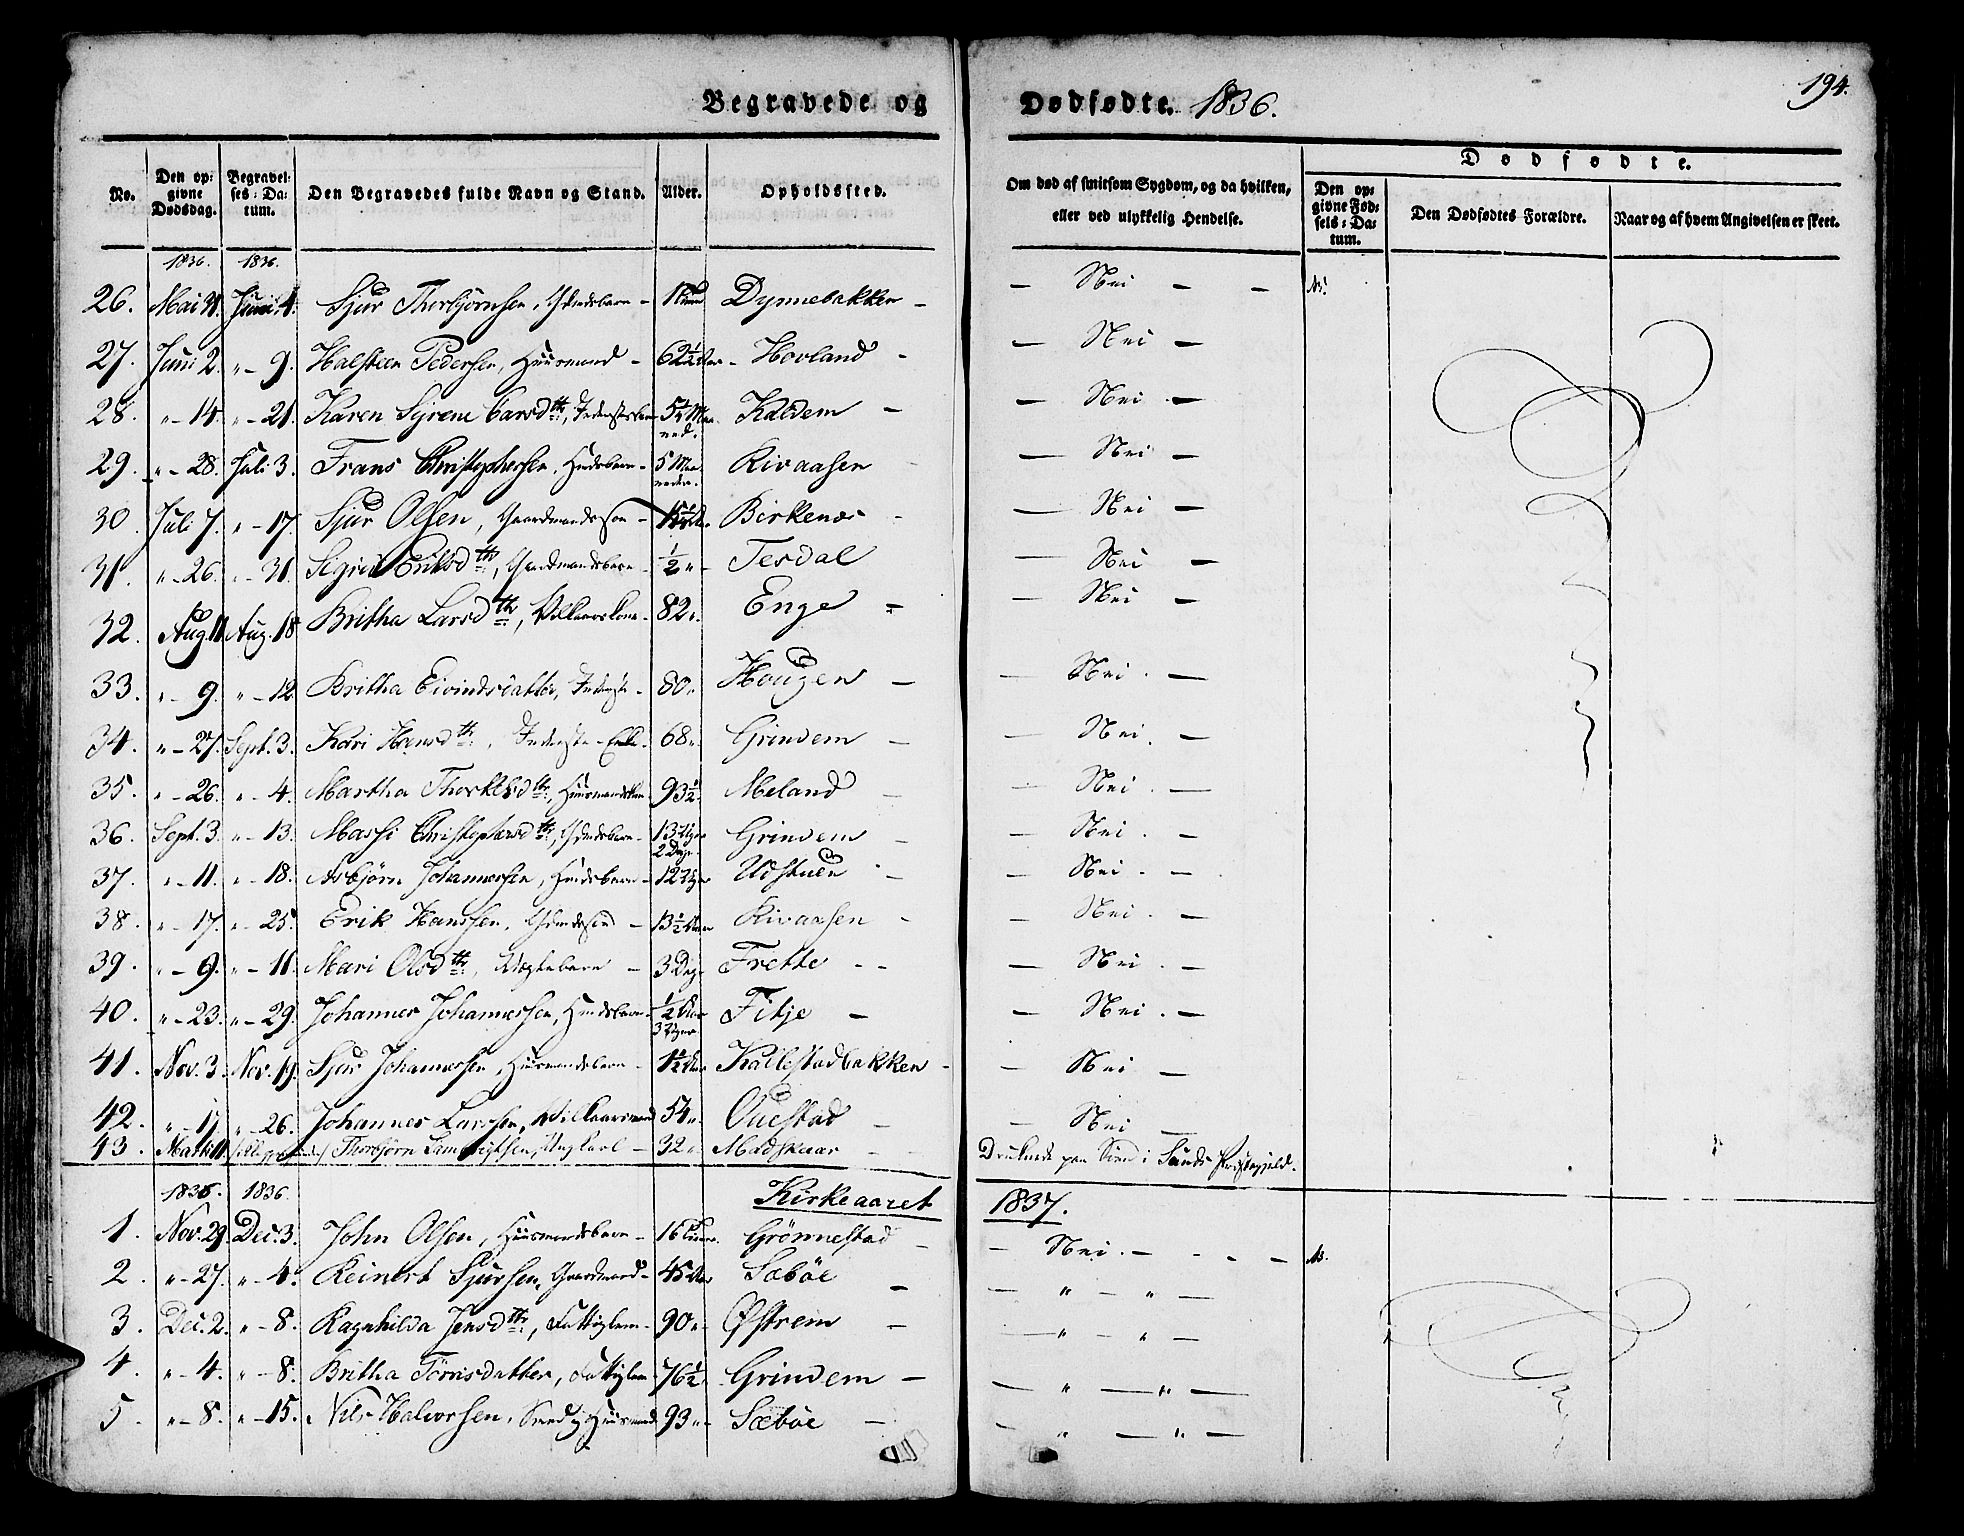 Begravede og Dødfødte. 1836.
194.
No.
Den opgivne Dødsdag.
Begravelses-Datum.
Den Begravedes fulde Navn og Stand.
Alder.
Opholdssted.
Om død af smitsom Sygdom, og da hvilken, eller ved ulykkelig Hendelse.
Dødfødte.
Den opgivne Fødsels-Datum.
Den Dødfødtes Forældre.
Naar og af hvem Angivelsen er skeet.
1836. 1836.
26. Mai 31. Juni 4. Sjur Thorbjørnsen, Dynnebakken - - Nei - -
27. Juni 2. " - 9. Halsteen Pedersen, Huusmand - 62½ Aar - Hovland - - Nei -
28. " - 14. " - 21. Karen Syrene Larsdtr, Kaldem - - Nei -
29. " - 28. Juli 3. Frans Christophersen, 5 Maaneder. Kivaasen - Nei -
30. Juli 7. " - 17. Sjur Olsen, Gaardmandsson - Birkenæs - - Nei -
31. " - 26. " - 31. Segrid Eriksdtr, Gaardmandsbarn - ½ " - Tesdal - Nei -
32. Aug. 11. Aug. 18 Britha Larsdtr, Vilkaarskone - 82 ". Enge - - Nei -
33. " - 9. " - 12. Britha Eivindsdatter, Inderste - 80 ". Hougen - - Nei. -
34. " - 27. Sept. 3. Kari Hansdtr, Inderste-Enke. 68 ". Grindem - - Nei. -
35. " - 26. " - 4. Martha Thorkelsdtr, 93½. Meland - - Nei. -
36. Sept. 3. " - 13. Massi Christophersdtr, 13 Uger 2 Dage. Grindem - - Nei. -
37. " - 11. " - 18. Asbjørn Johannessen, 12 Uger Udstuen - - Nei. -
38. " - 17. " - 25. Erik Hanssen, 13½ Aar Kivaasen - - Nei. -
39. " - 9. " - 11. Mari Olsdtr, - 3 Dage Frette - - - Nei. -
40. " - 23. " - 29. Johannes Johannessen, ½ Aar 3 Uger Fitje - - Nei. -
41. Nov. 3. Nov. 19. Sjur Johannessen, Huusmandsbarn - 1½ Aar Kallestadbakken - - Nei -
42. " - 17. " - 26. Johannes Larssen, Vilkaarsmand 54 ". Ouestad - - Nei -
43. Thorbjørn Ungkarl - 32 ". Madskaar - Druknede paa Søen i Sunds Præstegjeld.
1836. 1836. Kirkeaaret 1837.
1. Nov. 29. Dec. 3. John Olsen, Huusmandsbarn - Grønnestad - - Nei. - - - -
2. " - 27. " - 4. Reinert Sjursen, Gaardmand - 45 Aar Sæbøe - - " - " -
3. Dec. 2. " - 8. Ragnhilda Jensdtr, Fattiglem - 90 " - Østrem - - " - " -
4. " - 4. " - 8. Britha Tørrisdatter, Fattiglem - 76½. Grindem - - " - " -
5. " - 8. " - 15. Nils Halvorsen, 93 " - Sæbøe - - " - " -